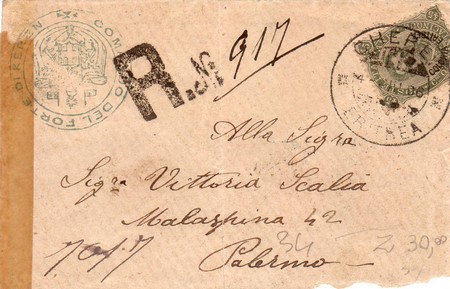 COMANDO DEL FORTE DI KEREN
R. N.
917
CHEREN
ERITREA
Alla Sigra
Sigra Vittoria Scalia
Malaspina 42
7017
Palermo
34
30,00